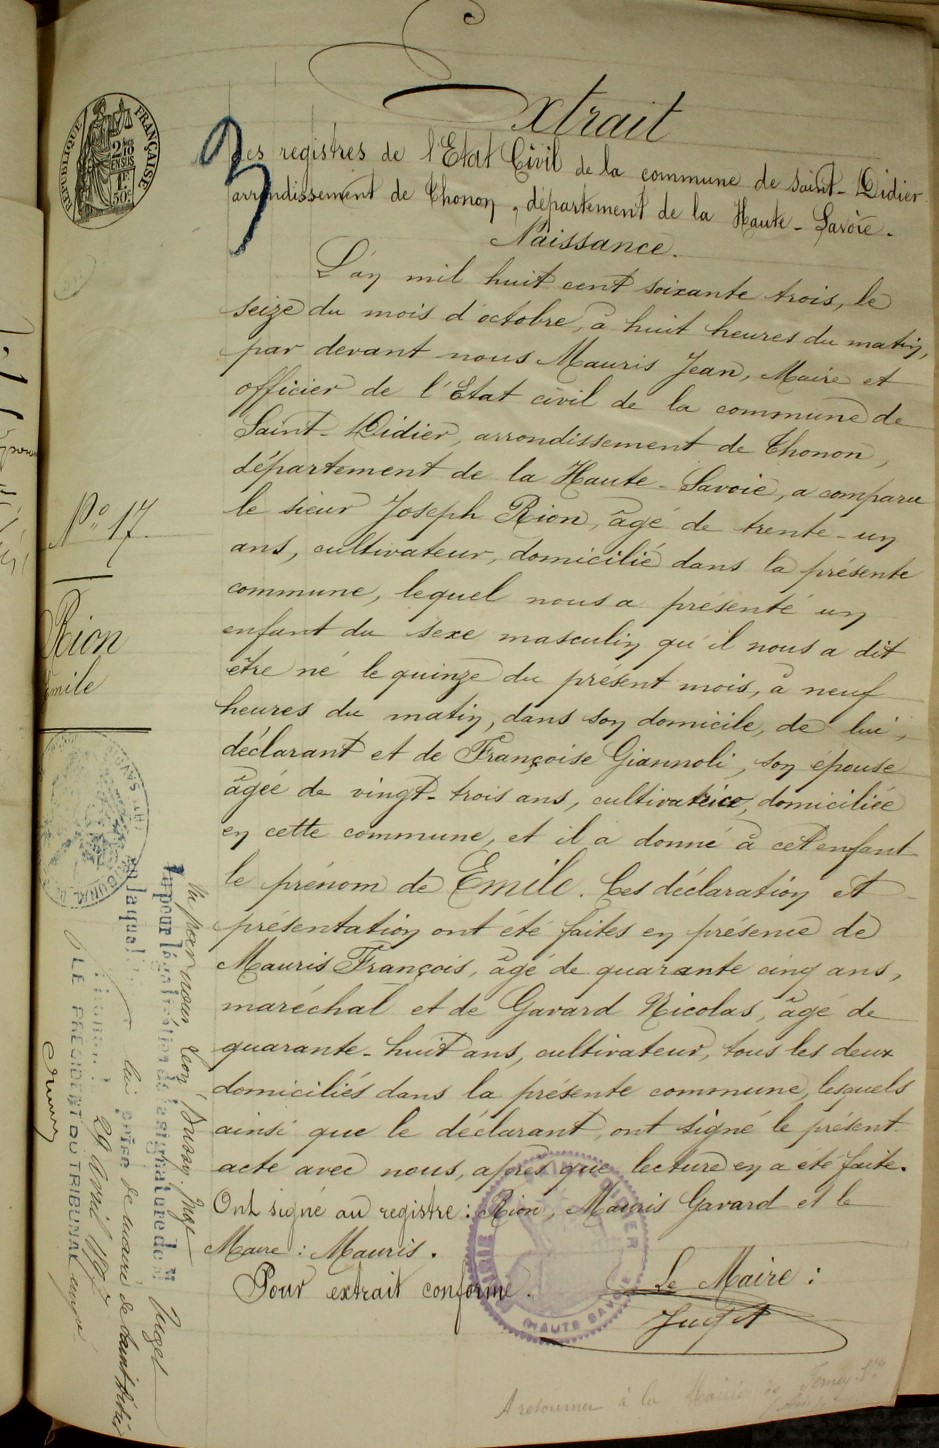 Extrait
des registres de l'Etat Civil de la commune de Saint-Didier
arrondissement de Thonon, département de la Haute-Savoie.
Naissance.
L'an mil huit cent soixante trois, le
seize du mois d'octobre, à huit heures du matin,
par devant nous Mauris Jean, Maire et
officier de l'Etat civil de la commune de
Saint-Didier, arrondissement de Thonon,
département de la Haute-Savoie, a comparu
le sieur Joseph Rion, âgé de trente-un
ans, cultivateur, domicilié dans la présente
commune, lequel nous a présenté un
enfant du sexe masculin qu'il nous a dit
être né le quinze du présent mois, à neuf
heures du matin, dans son domicile, de lui,
déclarant et de Françoise Giannoli, son épouse
âgée de vingt-trois ans, cultivatrice, domiciliée
en cette commune, et il a donné à cet enfant
le prénom de Emile. Ces déclaration et
présentation ont été faites en présence de
Mauris François, âgé de quarante cinq ans,
maréchal et de Gavard Nicolas, âgé de
quarante-huit ans, cultivateur, tous les deux
domiciliés dans la présente commune, lesquels
ainsi que le déclarant, ont signé le présent
acte avec nous, après que lecture en a été faite.
Ont signé au registre : Rion, Mauris Gavard et le
Maire : Mauris.
Pour extrait conforme.
Le Maire :
A retourner à la Mairie de
N° 17.
Rion
Emile
RÉPUBLIQUE FRANÇAISE
2/10 EN SUS
1F 50c
3
MAIRIE SAINT-DIDIER
(HAUTE SAVOIE)
Vu par nous Léon Juge
Vu pour légalisation de la signature de M
en sa qualité de maire de Saint Didier
29 Avril
LE PRÉSIDENT DU TRIBUNAL